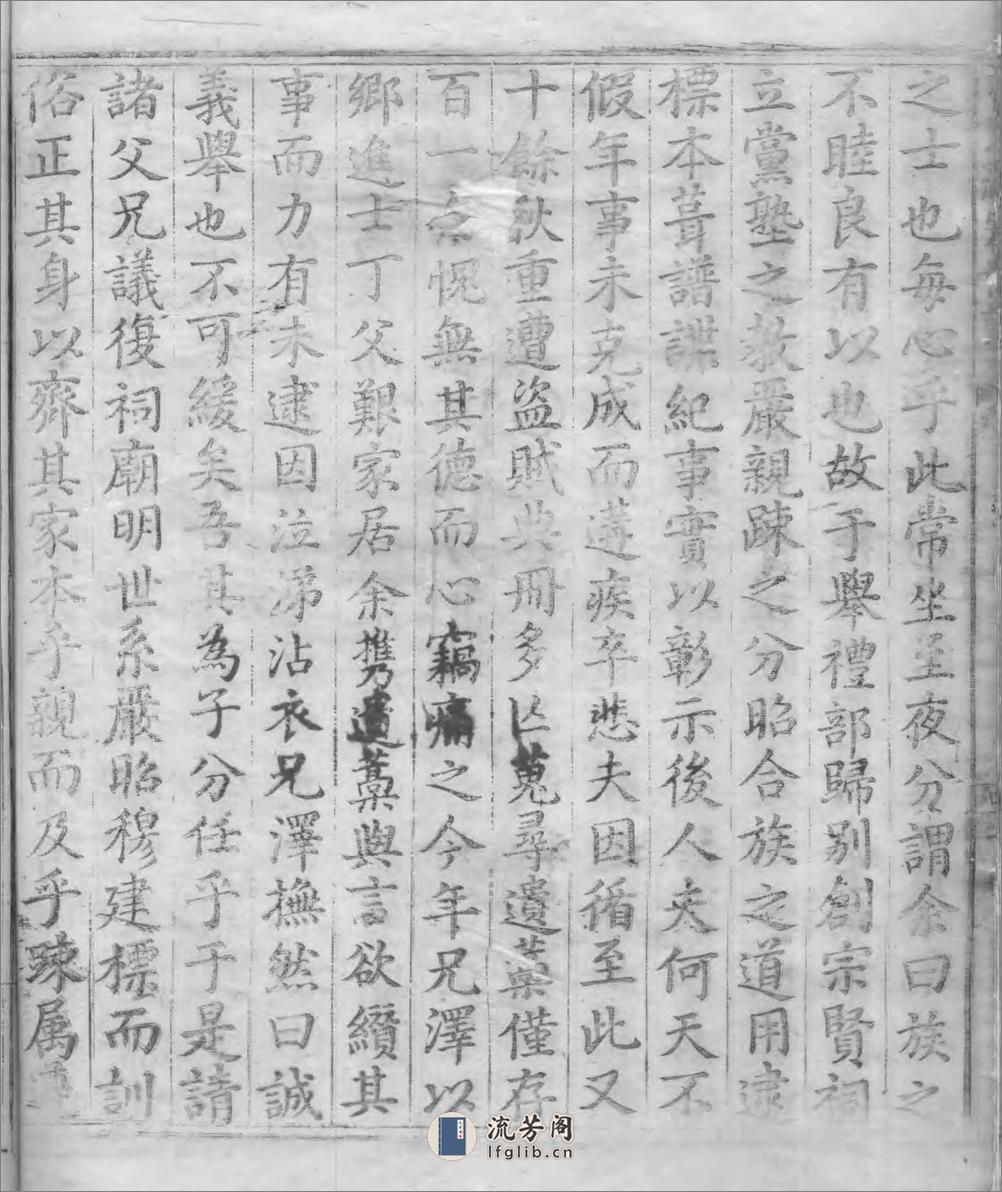 之士也每心乎此常坐至夜分謂余曰族之
不睦良有以也故于舉禮部歸別創宗賢祠
立黨塾之教嚴親踈之分昭合族之道用逮
標本葺譜諜紀事實以彰示後人夫何天不
假年事未克成而遘疾卒悲夫因循至此又
十餘秋重遭盜賊典冊多亾蒐尋遺藁僅存
百一之愧無其德而心竊痛之今年兄澤以
鄉進士丁父艱家居余携乃遺藁與言欲纘其
事而力有未逮因泣涕沾衣兄澤撫然曰誠
義舉也不可緩矣吾其為子分任乎于是請
諸父兄議復祠廟明世系嚴昭穆建標而訓
俗正其身以齊其家本乎親而及乎踈属
流芳阁
lfglib.cn